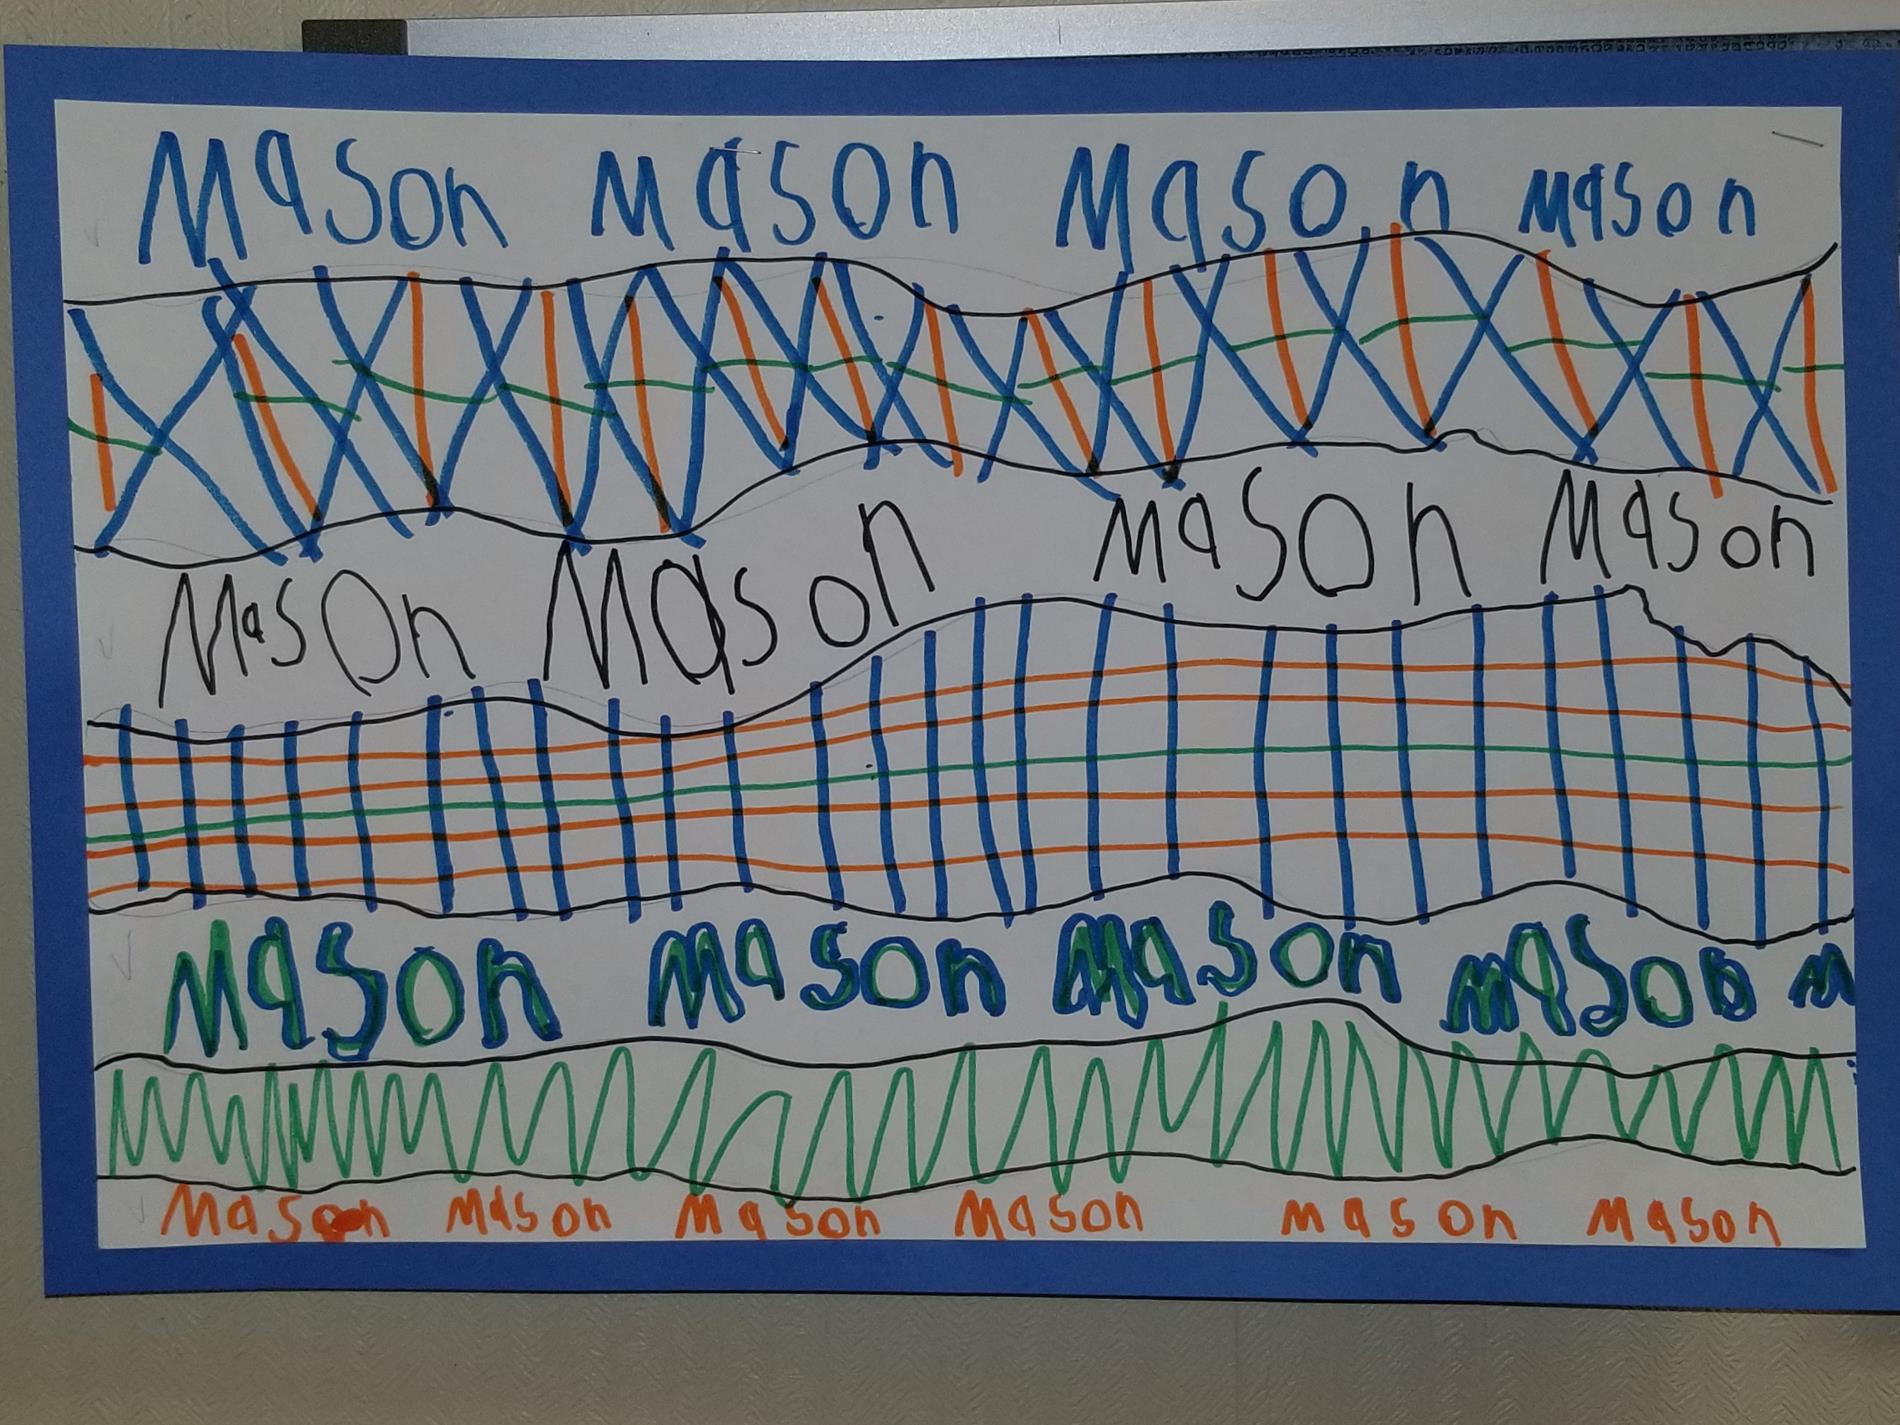 Mason Mason Mason Mason
Mason Mason Mason Mason
Mason Mason Mason Mason M
Mason Mason Mason Mason Mason Mason